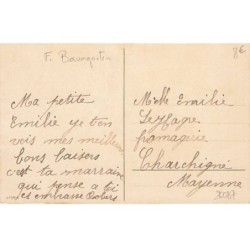 F. Baumgarten
86
Ma petite
Emilie je ten
vois mes meilleurs
bons baisers
c'est ta marraine
qui pense a toi
et embrasse
Melle Emilie
fromagerie
Charchigné
Mayenne